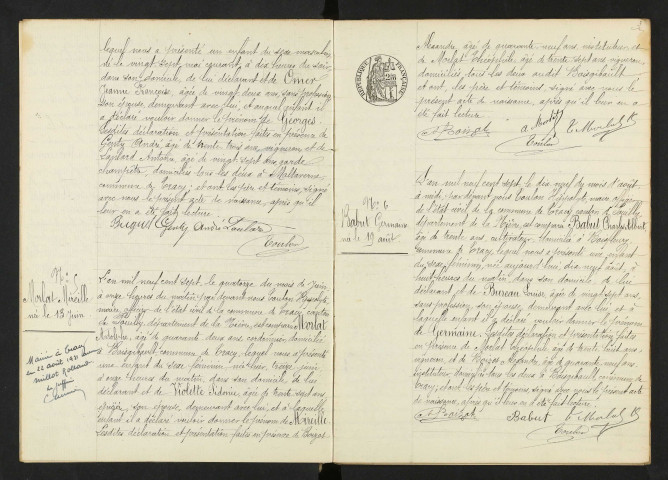 lequel nous a présenté un enfant du sexe masculin
né le vingt sept mai courant à dix heures du soir
dans son domicile de lui déclarant et de Omer
Jeanne Françoise, âgée de vingt deux ans, sans profession
son épouse, demeurant avec lui, et auquel enfant il
a déclaré vouloir donner le prénom de Georges.
Lesdites déclaration et présentation faites en présence de
Genty André, âgé de trente trois ans, vigneron et de
Antoine, âgé de vingt sept ans, garde
champêtre, domiciliés tous les deux à Maltaverne
commune de Tracy; et ont les père et témoins, signé
avec nous le présent acte de naissance, après qu'il
leur en a été fait lecture.
Genty André
Toulon
N° 5
Morlat Mireille
né le 13 juin
Mairie de Tracy
le 22 août 1931
L'an mil neuf cent sept, le quatorze du mois de Juin
à onze heures du matin, par devant nous Toulon Hippolyte,
maire, officier de l'état civil de la commune de Tracy, canton
de Pouilly, département de la Nièvre, est comparu Morlat
Adolphe, âgé de quarante deux ans, cordonnier, domicilié
à Boisgibault, commune de Tracy, lequel nous a présenté
un enfant du sexe féminin, né hier, treize juin
à onze heures du matin, dans son domicile, de lui
déclarant et de Violette Sidonie, âgée de trente sept ans
épicière, son épouse, demeurant avec lui, et à laquelle
enfant il a déclaré vouloir donner le prénom de Mireille
Lesdites déclaration et présentation faites en présence de
2
RÉPUBLIQUE FRANÇAISE
Alexandre, âgé de quarante neuf ans, instituteur et
de Morlat Théophile, âgé de trente sept ans, vigneron
domiciliés tous les deux audit Boisgibault
et ont, les père et témoins, signé avec nous le
présent acte de naissance, après qu'il leur en a
été fait lecture.
A Morlat
T Morlat
Toulon
N° 6
Babut Germaine
né le 19 août
L'an mil neuf cent sept, le dix neuf du mois d'août
à midi, par devant nous Toulon Hippolyte, maire, officier
de l'état civil de la commune de Tracy, canton de Pouilly,
département de la Nièvre, est comparu Babut Charles Albert,
âgé de trente ans, cultivateur, domicilié à Boisgibault
commune de Tracy, lequel nous a présenté un enfant
du sexe féminin, né aujourd'hui, dix neuf août, à
neuf heures du matin, dans son domicile, de lui
déclarant et de Bureau Louise, âgée de vingt sept ans,
sans profession, son épouse, demeurant avec lui, et à
laquelle enfant il a déclaré vouloir donner le prénom
de Germaine. Lesdites déclaration et présentation faites
en présence de Morlat Théophile, âgé de trente huit ans,
vigneron, et de Alexandre, âgé de quarante neuf ans,
instituteur, domiciliés tous les deux à Boisgibault, commune de
Tracy; et ont, les père et témoins, signé avec nous le présent acte
de naissance, après qu'il leur en a été fait lecture.
Babut
T Morlat
Toulon